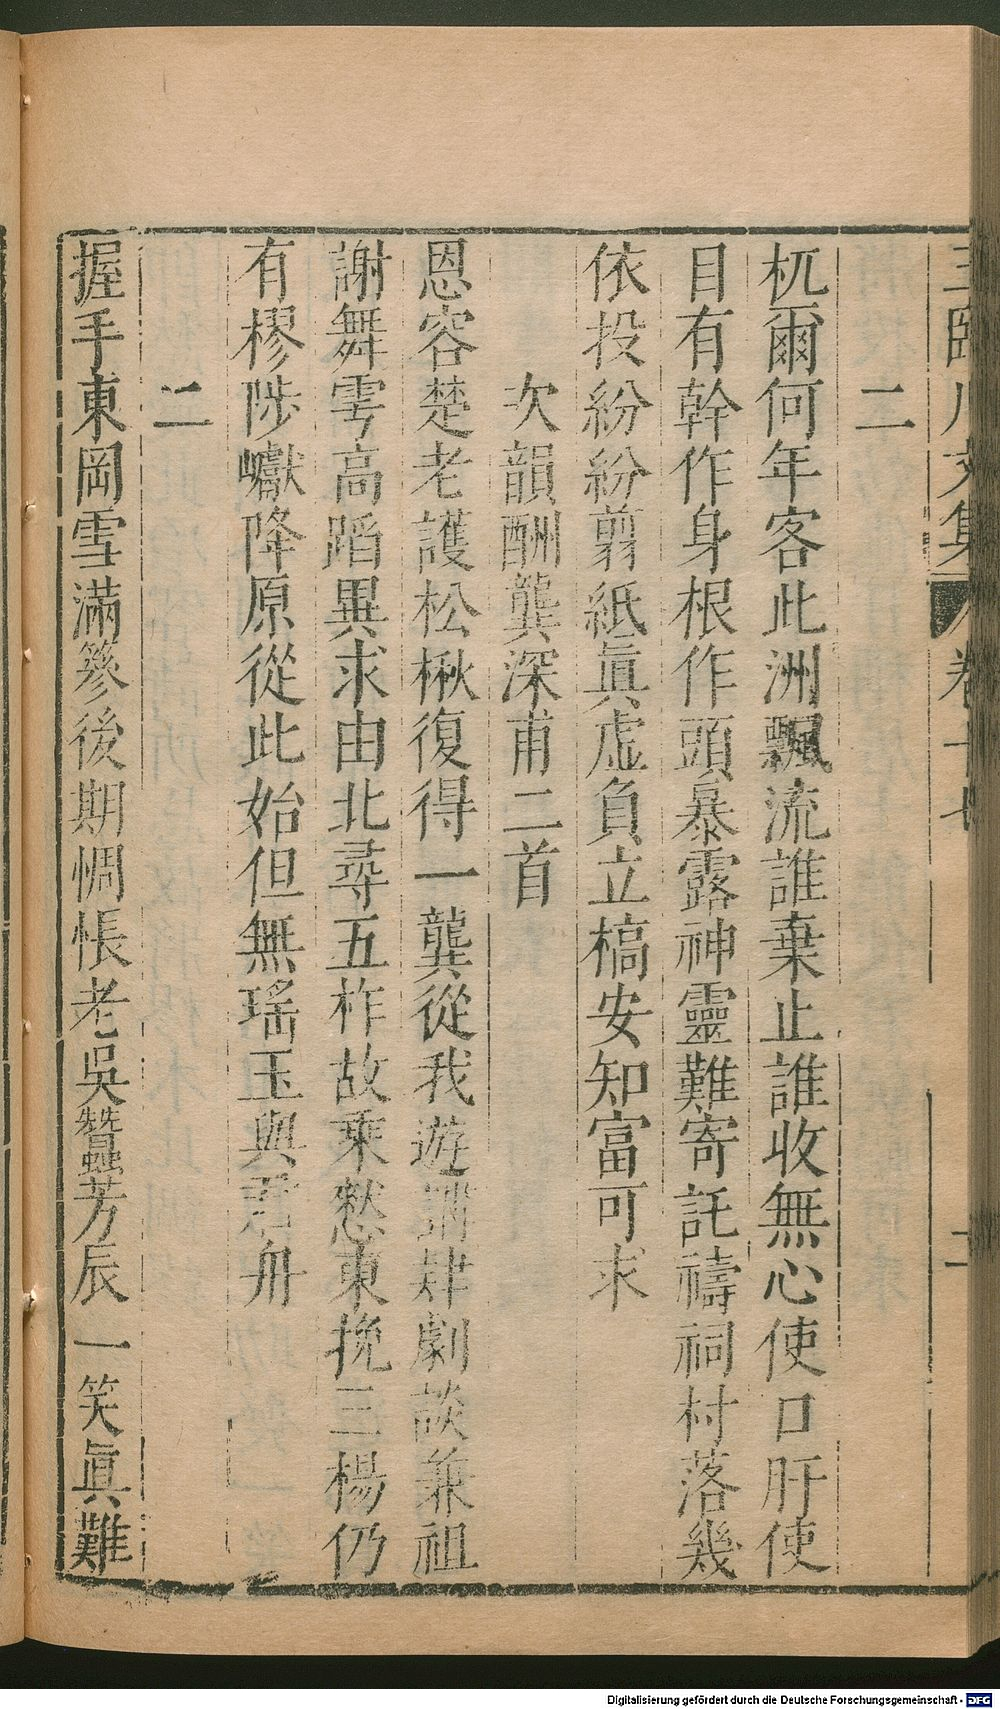 王臨川文集 卷十七 二
二
杌爾何年客此洲飄流誰棄止誰收無心使口肝使
目有幹作身根作頭暴露神靈難寄託禱祠村落幾
依投紛紛剪紙眞虛負立槁安知富可求
次韻酬龔深甫二首
恩容楚老護松楸復得一龔從我遊講肆劇談兼祖
謝舞雩高蹈異求由北尋五柞故乘憖東挽三楊仍
有樛陟巘降原從此始但無瑤玉與君舟
二
握手東岡雪滿篸後期惆悵老吳蠶芳辰一笑眞難
Digitalisierung gefördert durch die Deutsche Forschungsgemeinschaft - DFG